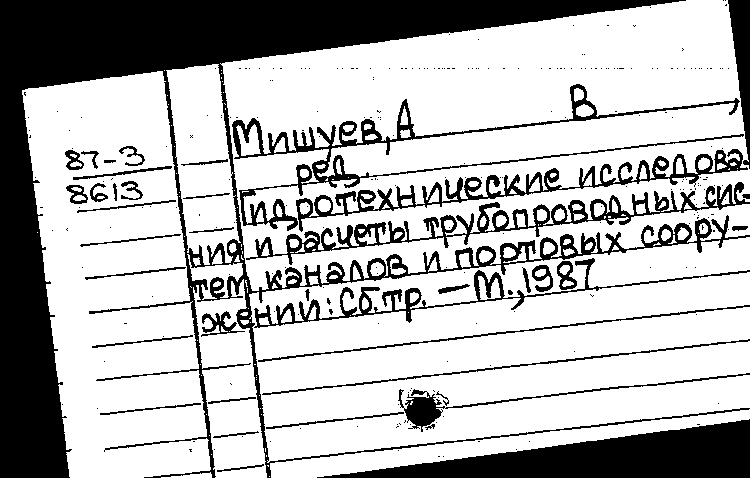 87-3
8613
Мишуев, А В,
ред.
Гидротехнические исследова-
ния и расчеты трубопроводных сис-
тем, каналов и портовых соору-
жений: Сб. тр. — М., 1987.